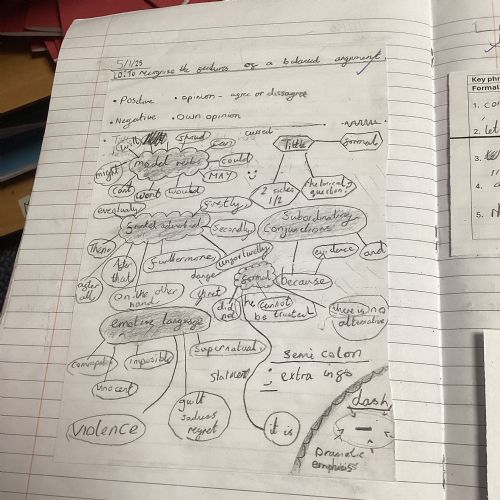 5/1/23
LO: To recognise the features of a balanced argument
• Positive • opinion - agree or dissagree
• Negative • Own opinion
cursed
should
can
Title
formal
modal verbs
could
might
MAY
cant
wont
would
2 sides
1/2
rhetorical
question?
eventually
firstly
fronted adverbial
Secondly
Subordinating
conjunctions
Then
After
that
Furthermore
unfortunetly
evidence
and
after
all
On the other
hand
dange
formal
because
greet
did
not
he cannot
be trusted
there is no
alternative
emotive language
impossible
Supernatural
semi colon
innocent
; extra info
guilt
sadness
regret
dash
Violence
it is
–
Dramatic
emphisis
Key phr
Formal
1. con
2. let
3.
4. c
5.